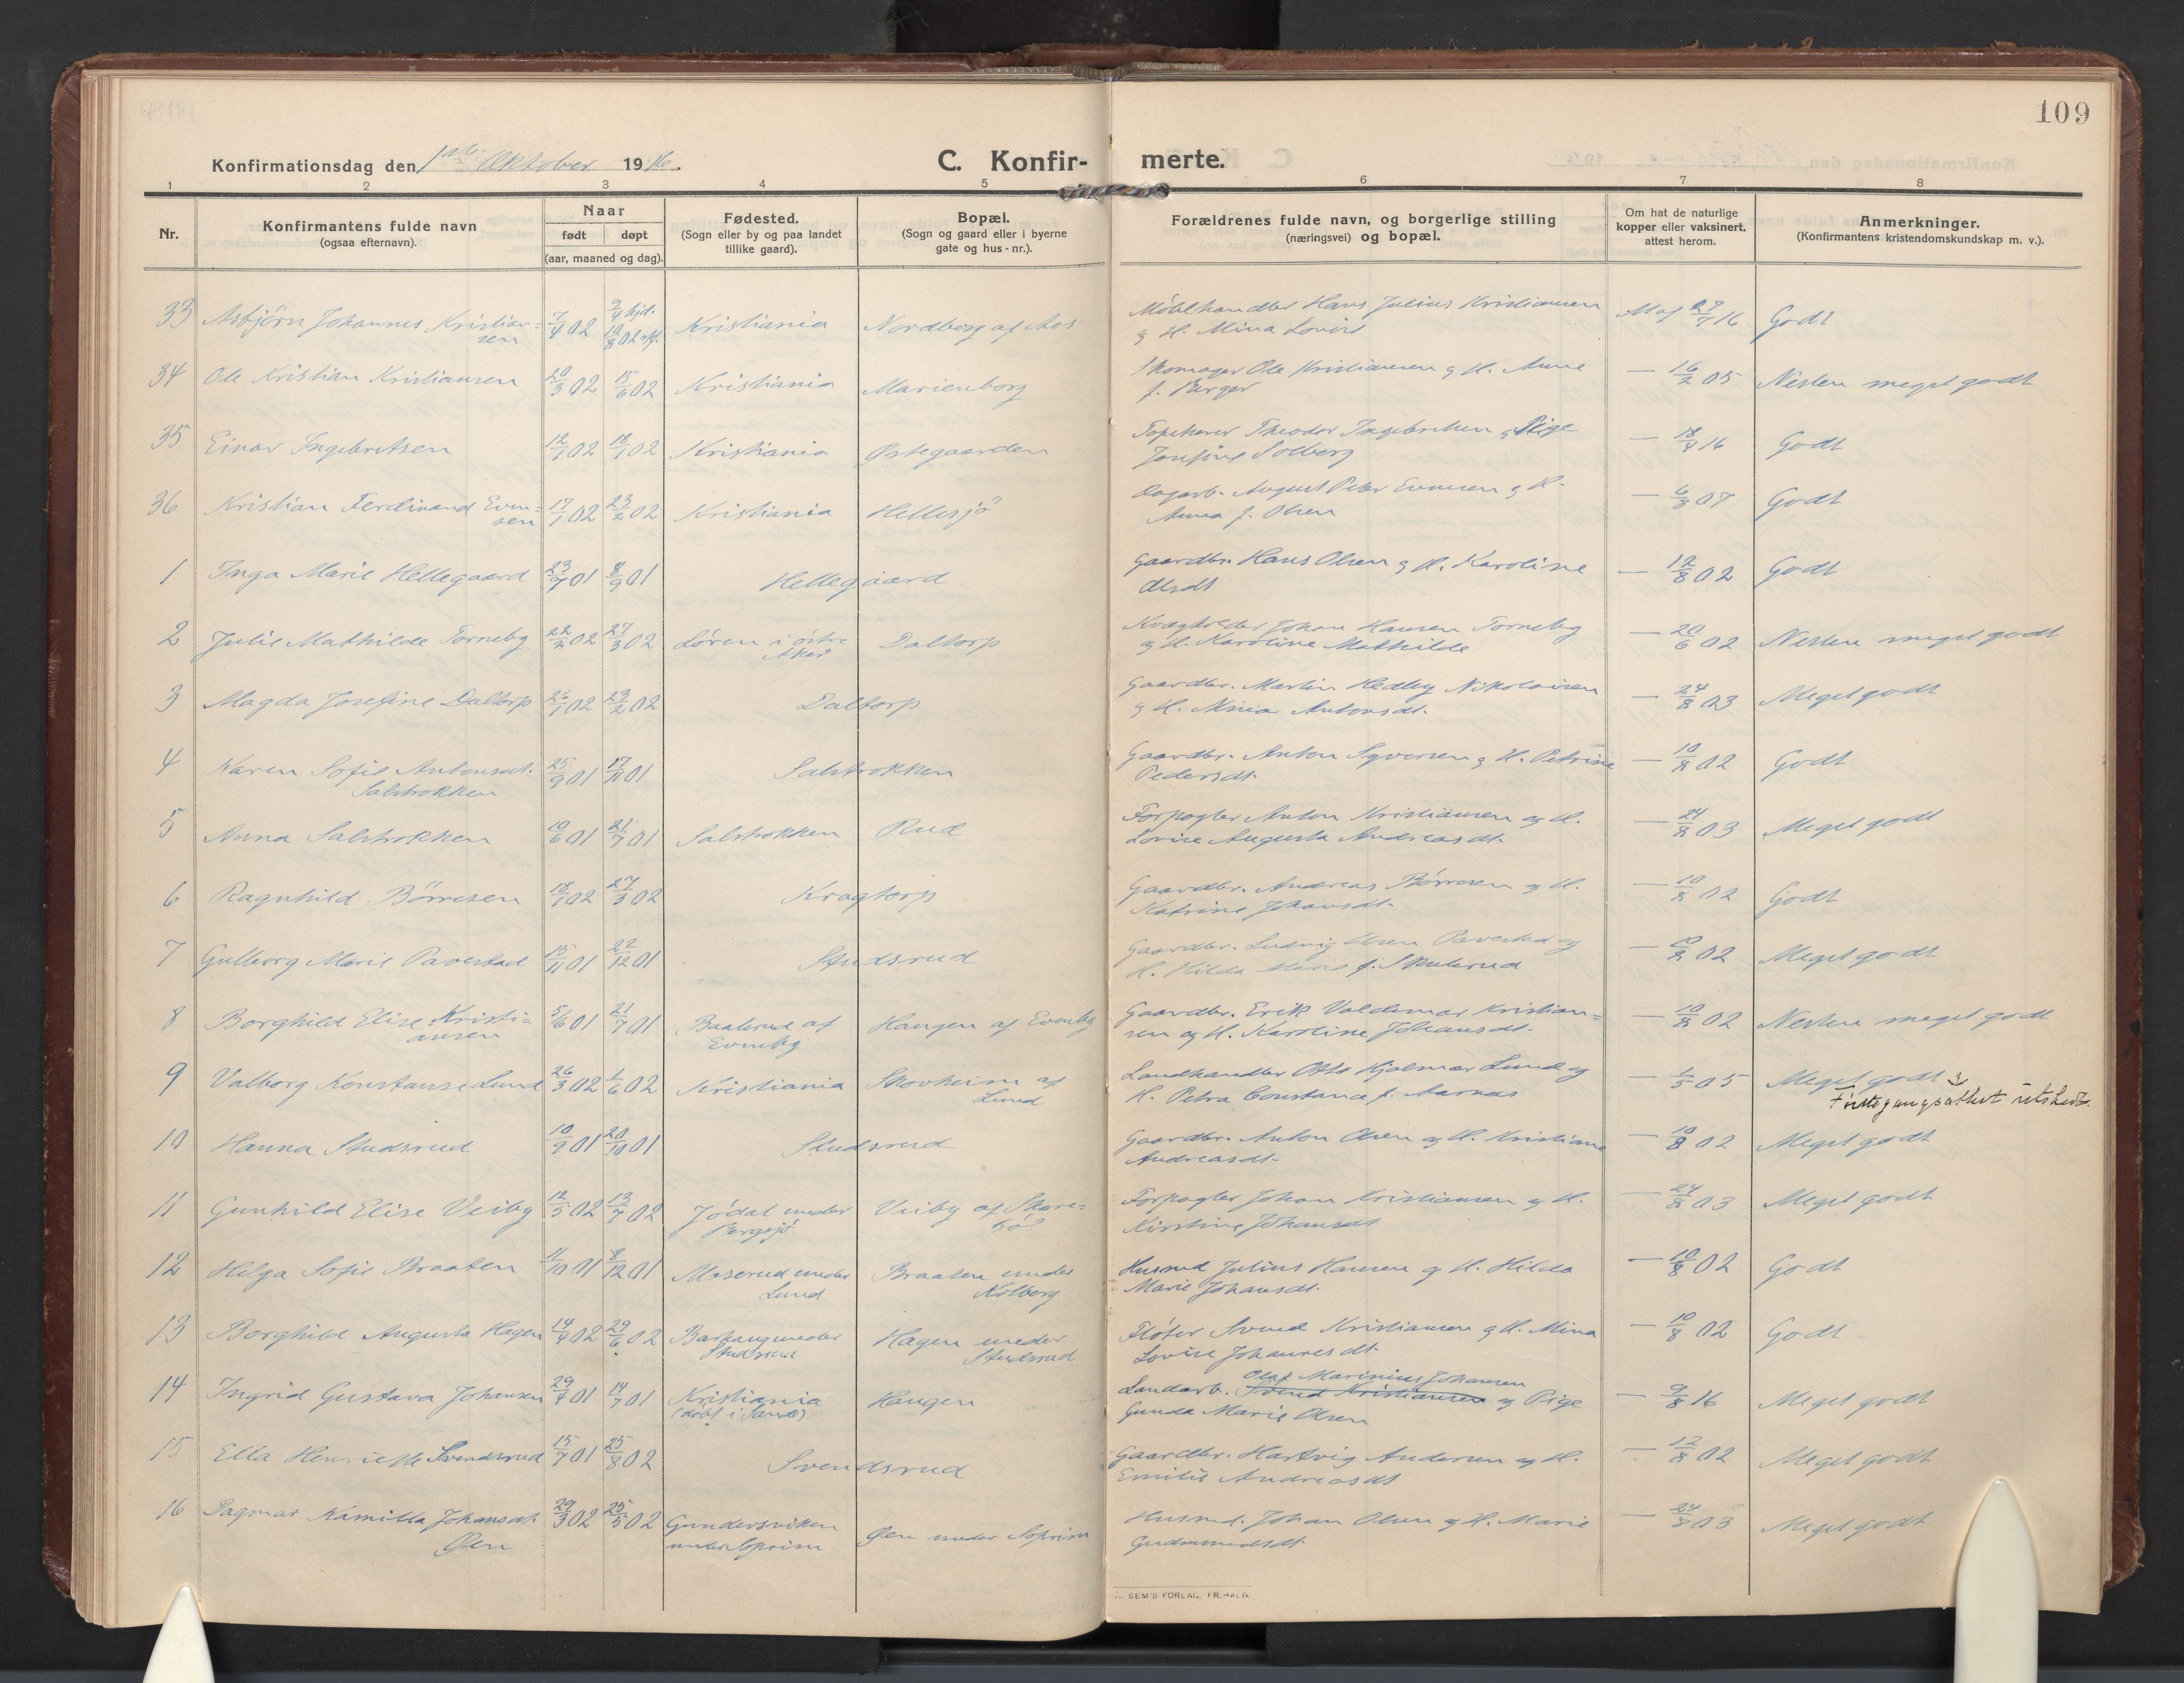 109
Konfirmationsdag den 1ste Oktober 1916.
C. Konfir- merte.
1 2 3 4 5 6 7 8
Nr.
Konfirmantens fulde navn
(ogsaa efternavn).
Naar
født døpt
(aar, maaned og dag).
Fødested.
(Sogn eller by og paa landet
tillike gaard).
Bopæl.
(Sogn og gaard eller i byerne
gate og hus-nr.).
Forældrenes fulde navn, og borgerlige stilling
(næringsvei) og bopæl.
Om hat de naturlige
kopper eller vaksinert,
attest herom.
Anmerkninger.
(Konfirmantens kristendomskundskap m. v.).
33 Asbjörn Johannes Kristian= 7/4 02 9/4 hjd. Kristiania Nordberg af Aas Møblhandler Hans Julius Kristiansen 27/7 16 Godt
sen 10/8 02 og H. Mina Lovise
34 Ole Kristian Kristiansen 20/3 02 15/6 02 Kristiania Marienborg Skomager Ole Kristiansen og H. Anne — 16/2 05 Nesten meget godt
f. Berger
35 Einar Ingebretsen 12/1 02 18/1 02 Kristiania Østegaarden Theodor Ingebretsen og Pige — 18/4 16 Godt
Josefine Solberg
36 Kristian Ferdinand Even= 17/1 02 23/2 02 Kristiania Hellesjö Dagarb. August Peter Evensen og H. — 6/3 07 Godt
sen Anna f. Olsen
1 Inga Marie Hellegaard 23/7 01 8/9 01 Hellegaard Gaardbr. Hans Olsen og H. Karoline — 12/8 02 Godt
Olsdt
2 Julie Mathilde Torneby 22/2 02 27/3 02 Løren i østre Daltorp Johan Hansen Torneby — 20/6 02 Nesten meget godt
Aker og H. Karoline Mathilde
3 Magda Josefine Daltorp 26/1 02 23/2 02 Daltorp Gaardbr. Martin Hedley Nikolaisen — 24/8 03 Meget godt
og H. Mina Antonsdt.
4 Karen Sofie Antonsdt. 25/9 01 17/11 01 Salstrokken Gaardbr. Anton Syversen og H. Petrine — 10/8 02 Godt
Salstrokken Pedersdt.
5 Anna Salstrokken 10/6 01 21/7 01 Salstrokken Rud Forpagter Anton Kristiansen og H. — 24/8 03 Meget godt
Lovise Augusta Andreasdt.
6 Ragnhild Börresen 18/1 02 27/3 02 Kragtorp Gaardbr. Andreas Börresen og H. — 10/8 02 Godt
Katrine Johansdt.
7 Gulborg Marie Pavestad 15/11 01 22/12 01 Studsrud Gaardbr. Ludvig Olsen Pavestad og — 10/8 02 Meget godt
H. Hilda Marie f. Skulerud
8 Borghild Elise Kristi= 5/6 01 21/7 01 Baalerud af Haugen af Evenby Gaardbr. Erik Valdemar Kristian= — 10/8 02 Nesten meget godt
ansen Evenby sen og H. Karoline Johansdt.
9 Valborg Konstanse Lund 26/3 02 1/6 02 Kristiania Skovheim af Landhandler Otto Hjalmar Lund og — 1/5 05 Meget godt
Lund H. Petra Constance f. Aarnas Førstegangsattest utstedt.
10 Hanna Studsrud 10/9 01 20/10 01 Studsrud Gaardbr. Anton Olsen og H. Kristiane — 10/8 02 Meget godt
Andreasdt.
11 Gunhild Elise Veiby 12/5 02 13/7 02 Jödal under Veiby af Skare= Forpagter Johan Kristiansen og H. — 24/8 03 Meget godt
Bergsjö böl Kirstine Johansdt
12 Helga Sofie Braaten 11/10 01 8/12 01 Moserud under Braaten under Husmd Julius Hansen og H. Hilda — 10/8 02 Godt
Lund Kolberg Marie Johansdt.
13 Borghild Augusta Hagen 14/4 02 29/6 02 Barhaug under Hagen under Fløter Svend Kristiansen og H. Mina — 10/8 02 Godt
Studsrud Studsrud Lovise Johannesdt.
Olaf Marinius Johansen
14 Ingrid Gustava Johansen 29/4 01 14/7 01 Kristiania Haugen Landarb. Svend Kristiansen og Pige — 9/8 16 Meget godt
(døbt i Sande) Gunda Marie Olsen
15 Ella Henriette Svendsrud 15/7 01 25/8 02 Svendsrud Gaardbr. Hartvig Andersen og H. — 12/8 02 Meget godt
Emilie Andreasdt
16 Dagmar Kamilla Johansdt. 29/3 02 25/5 02 Gundersviken Øen under Soprim Husmd. Johan Olsen og H. Marie — 24/8 03 Meget godt
Øen under Soprim Gudmundsdt.
SEM'S FORLAG, FR.HALD.